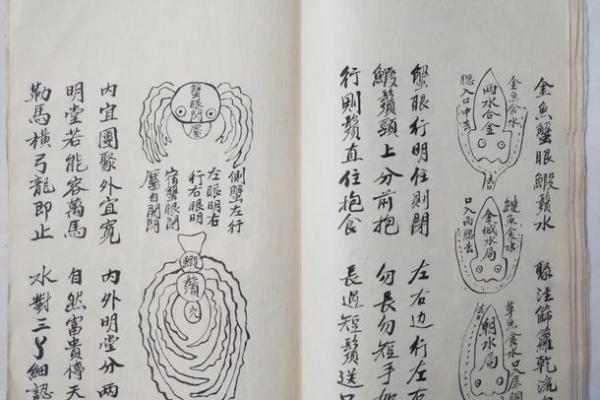 金魚蟹眼鰕鬚水 聚注篩籮乾流
金魚食水
腮入口中去
兩水合金
鰱魚食水
口入兩腮去
金城水局
草魚食水口入尾
朝水局
蟹眼行明住則閉 左右边行左右
鰕鬚頭上分前抱 勿長勿短手如
行則鬚直住抱食 長過短鬚送口
側蟹左行
左眼明右
行右眼明
宿蟹眼閉
屬自開閉
蟹眼閉
鰕鬚穴
內宜團聚外宜寬 內外明堂分兩
明堂若能容萬馬 自然富貴傳天
勒馬橫弓龍即止 水對三丫細認